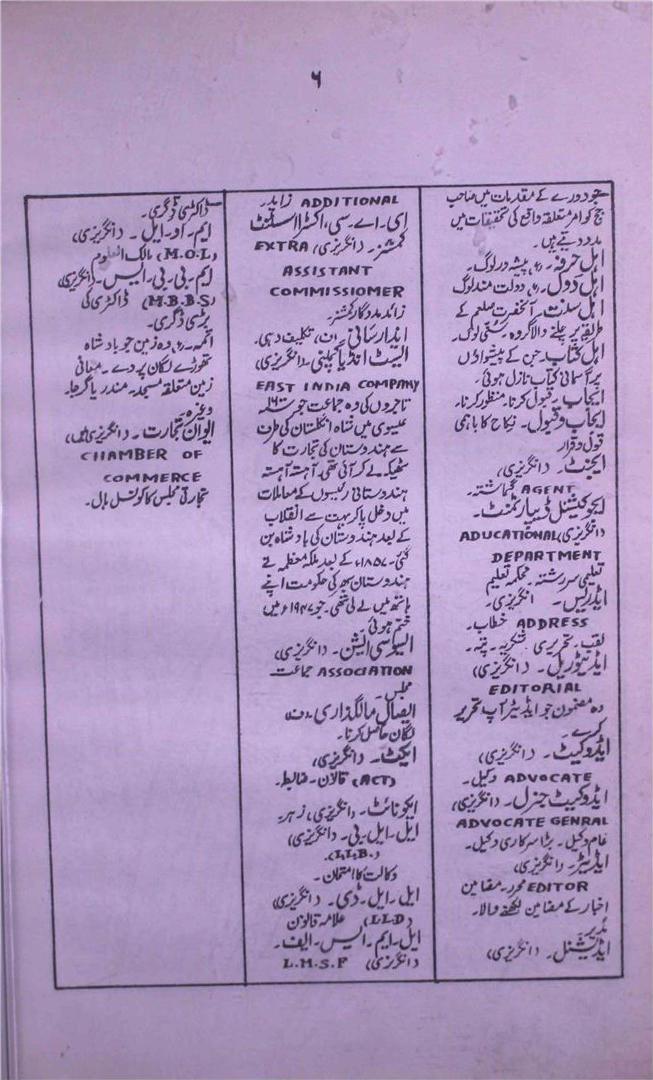 ۶
جو دورے کے مقدمات میں صاحب
جج کو امر متعلقہ واقع کی تحقیقات میں
مدد دیتے ہیں۔
اہل حرفہ۔ پیشہ ور لوگ۔
اہل دول۔ دولت مند لوگ
اہل سنت۔ آنحضرت صلعم کے
طریقہ پر چلنے والا گروہ۔ سنی لوگ۔
اہل کتاب۔ جن کے پیشواؤں
پر آسمانی کتاب نازل ہوئی۔
ایجاب۔ قبول کرنا۔ منظور کرنا۔
ایجاب و قبول۔ نکاح کا باہمی
قول و قرار
ایجنٹ۔ (انگریزی)
AGENT گماشتہ۔
ایجوکیشنل ڈیپارٹمنٹ۔
(انگریزی) ADUCATIONAL
DEPARTMENT
تعلیمی سررشتہ۔ محکمہ تعلیم
ایڈریس۔ انگریزی۔
ADDRESS خطاب۔
لقب۔ تحریری شکریہ۔ پتہ۔
ایڈیٹوریل۔ (انگریزی)
EDITORIAL
وہ مضمون جو ایڈیٹر آپ تحریر
کرے۔
ایڈوکیٹ۔ (انگریزی)
ADVOCATE وکیل۔
ایڈوکیٹ جنرل۔ (انگریزی)
ADVOCATE GENRAL
عام وکیل۔ بڑا سرکاری وکیل۔
ایڈیٹر۔ (انگریزی)
EDITOR محرر۔ مضامین
اخبار کے مضامین لکھنے والا۔
مدیر
ایڈیشنل۔ (انگریزی)
ADDITIONAL زاید۔
ای۔ اے۔ سی، اکسٹرا اسسٹنٹ
کمشنر۔ (انگریزی) EXTRA
ASSISTANT
COMMISSIOMER
زائد مددگار کمشنر۔
ایذا رسانی (ف) تکلیف دہی۔
ایسٹ انڈیا کمپنی۔ (انگریزی)
EAST INDIA COMPANY
تاجروں کی وہ جماعت جو ۱۶۰۰
عیسوی میں شاہ انگلستان کی طرف
سے ہندوستان کی تجارت کا
ٹھیکہ لے کر آئی تھی۔ آہستہ آہستہ
ہندوستانی رئیسوں کے معاملات
میں دخل پا کر بہت سے انقلاب
کے بعد ہندوستان کی بادشاہ بن
گئی۔ ۱۸۵۷ء کے بعد ملکہ معظمہ نے
ہندوستان بھر کی حکومت اپنے
ہاتھ میں لے لی تھی۔ جو ۱۹۴۷ء میں
ختم ہوئی
ایسوسی ایشن۔ (انگریزی)
ASSOCIATION جماعت
مجلس۔
ایصال مالگذاری۔ (ف)
لگان حاصل کرنا۔
ایکٹ۔ (انگریزی)
(ACT) قانون۔ ضابطہ۔
ایکونائٹ۔ (انگریزی) زہر۔
ایل۔ ایل۔ بی۔ (انگریزی)
(L.L.B.)
وکالت کا امتحان۔
ایل۔ ایل۔ ڈی۔ (انگریزی)
(L.L.D) علامہ قانون
ایل۔ ایم۔ ایس۔ ایف۔
(انگریزی) L.M.S.F
ڈاکٹری ڈگری۔
ایم۔ او۔ ایل۔ (انگریزی)
(M.O.L) مالک العلوم
ایم۔ بی۔ بی۔ ایس۔ (انگریزی)
(M.B.B.S) ڈاکٹری کی
بڑی ڈگری۔
ائمہ۔ وہ زمین جو بادشاہ
تھوڑے لگان پر دے۔ معافی
زمین متعلقہ مسجد۔ مندر یا گرجا۔
وغیرہ۔
ایوان تجارت۔ (انگریزی میں)
CHAMBER OF
COMMERCE
تجارتی مجلس کا کونسل ہال۔